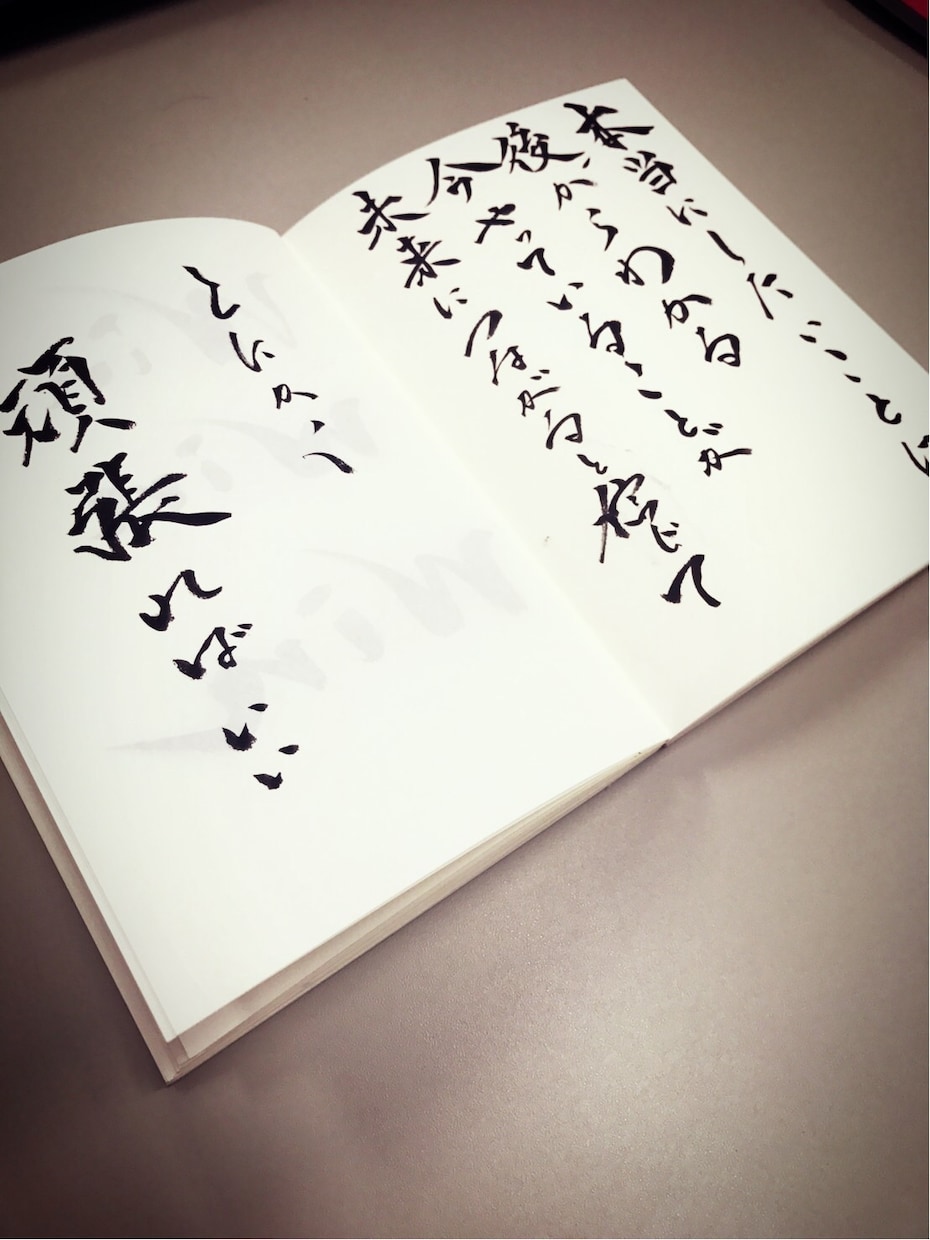 本当にしたいことは
後からわかる
今やっていることが
未来につながると信じて
とにかく
頑張ればいい